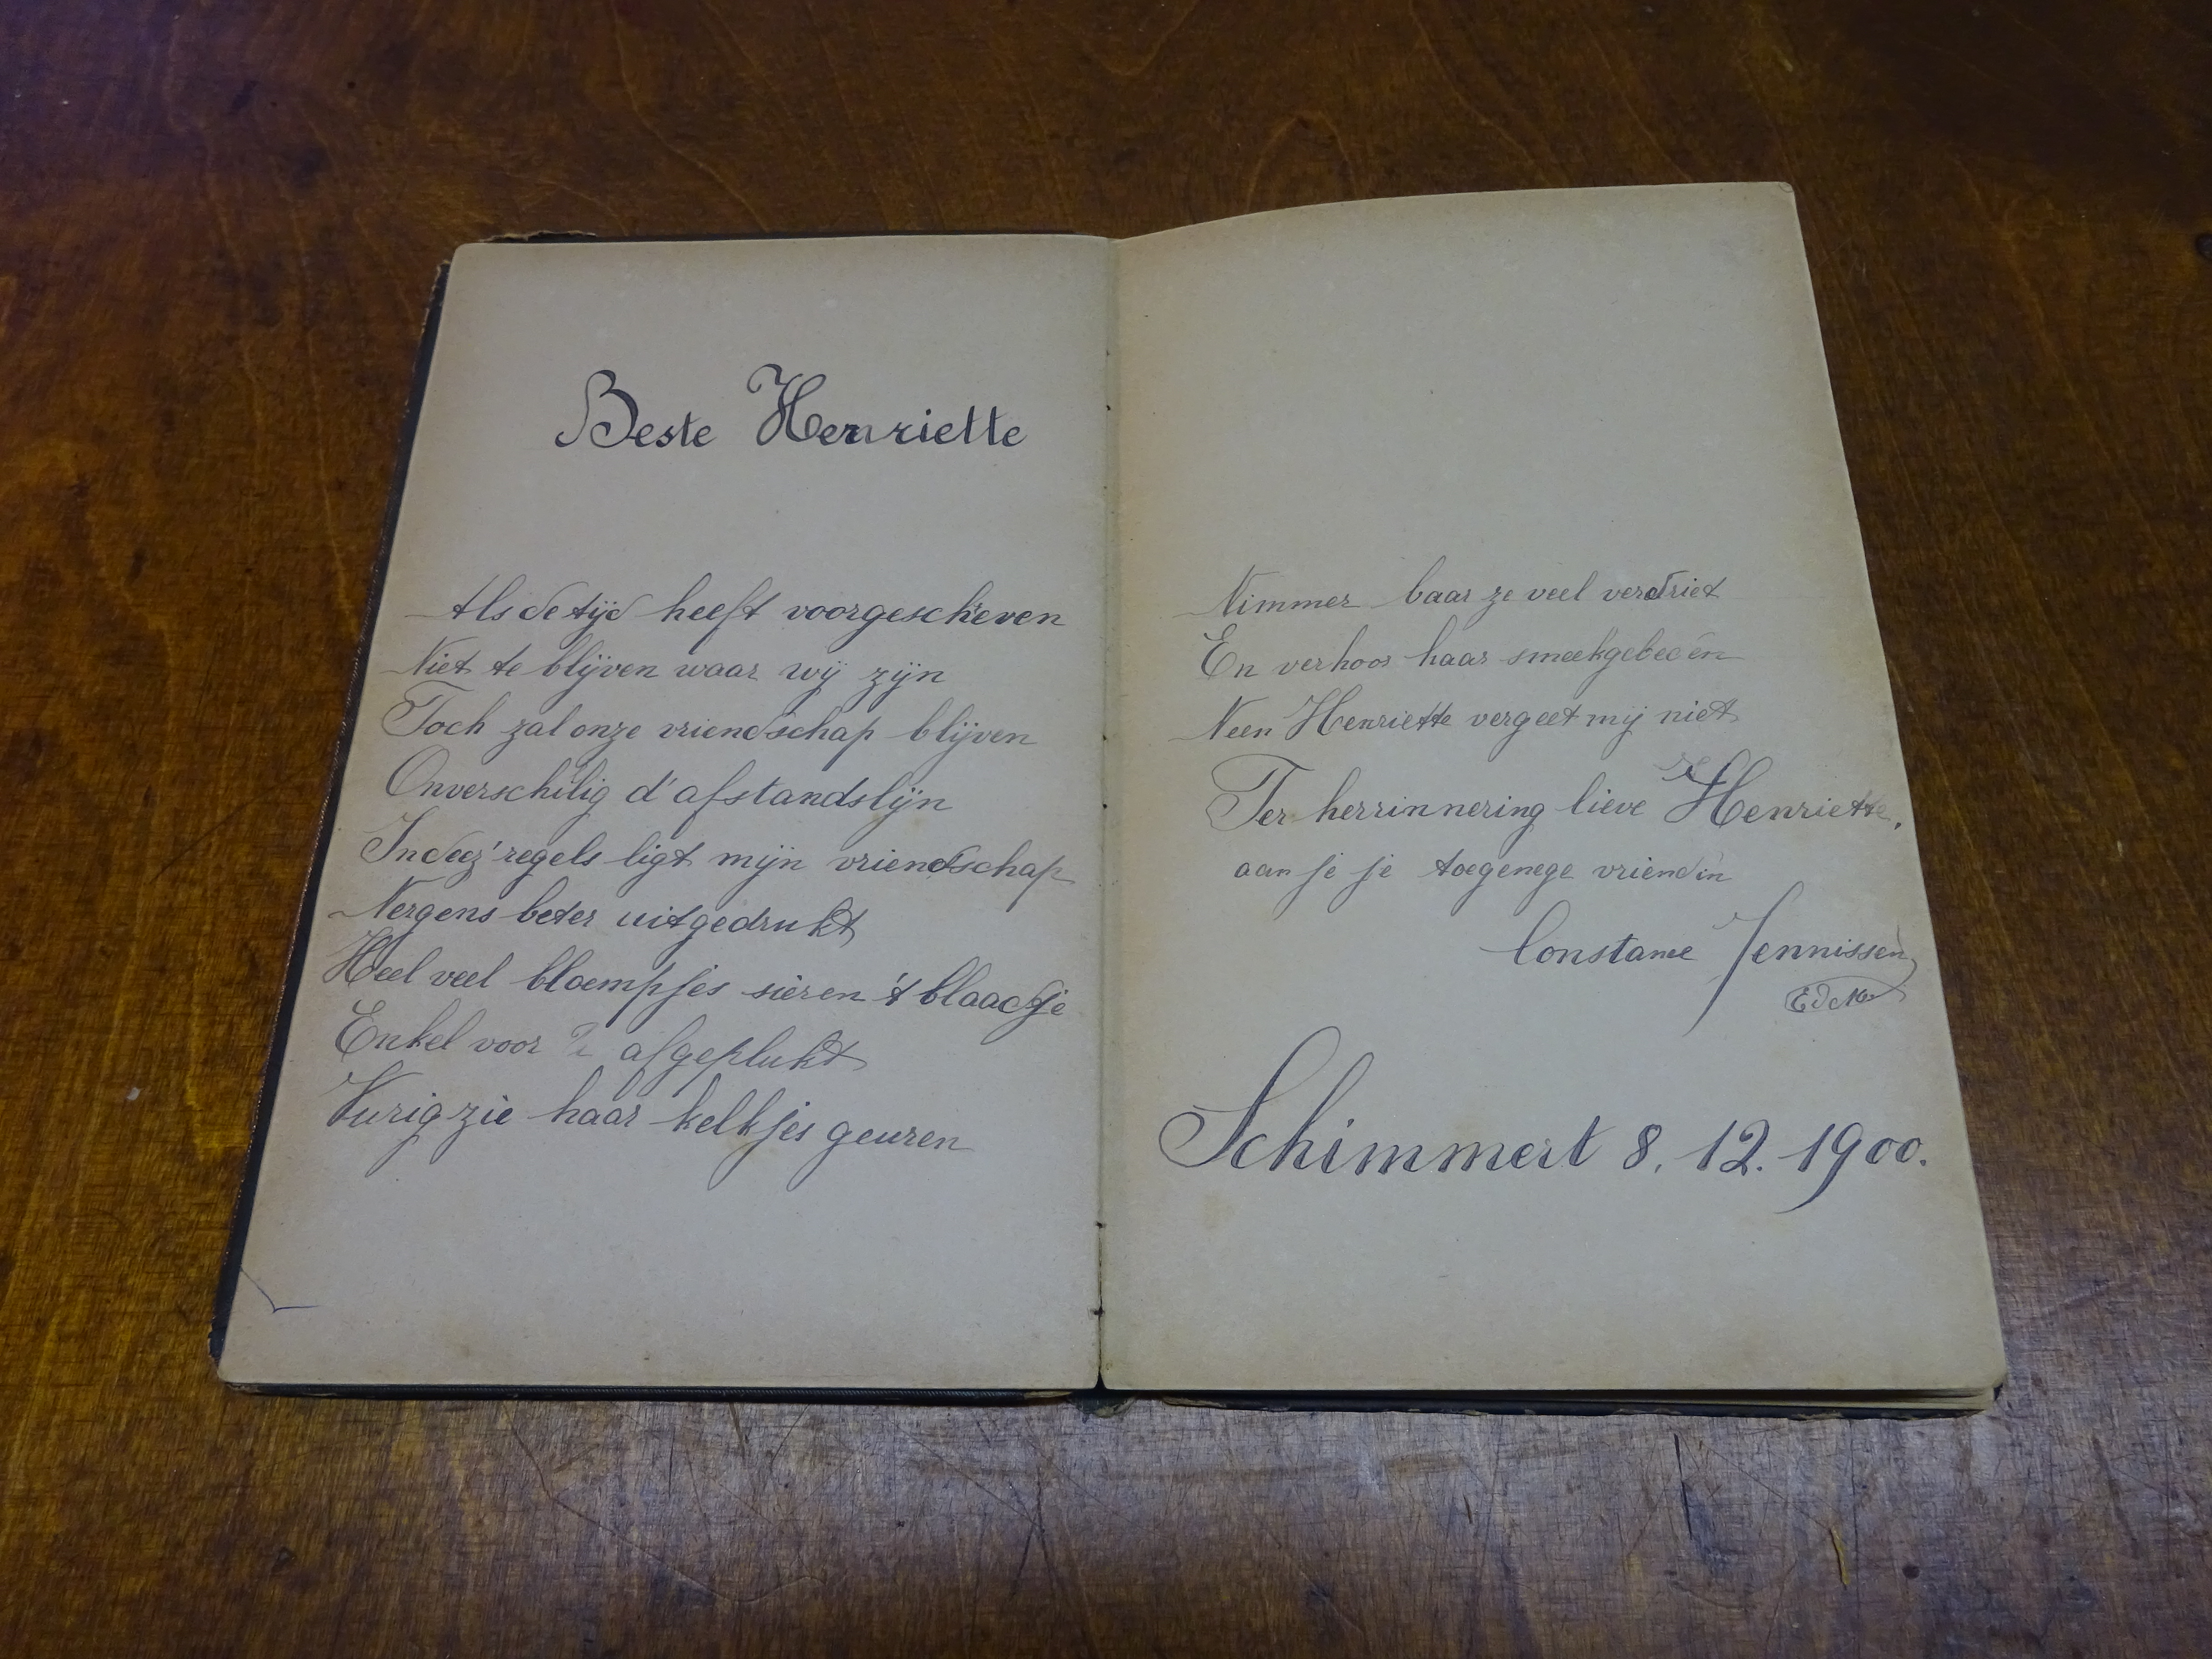 Beste Henriette
Als de tijd heeft voorgeschreven
Niet te blijven waar wij zijn
Toch zal onze vriendschap blijven
Onverschilig d'afstandslijn
In deez' regels ligt mijn vriendschap
Nergens beter uitgedrukt
Heel veel bloempjes sieren 't blaadje
Enkel voor afgeplukt
Vurig zie haar kelkjes geuren
Nimmer baar ze veel verdriet
En verhoor haar smeekgebeden
Neen Henriette vergeet mij niet
Ter herrinnering lieve Henriette,
aan je je toegenege vriendin
Constance Jennissen
EdM
Schimmert 8. 12. 1900.